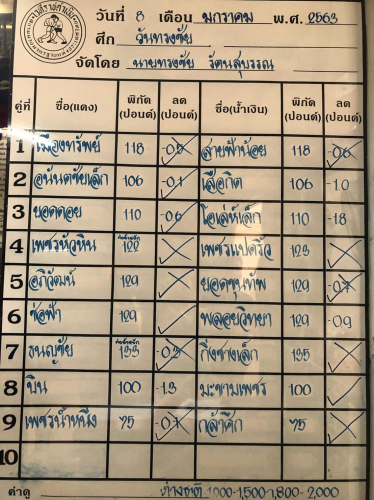 วันที่ 8 เดือน มกราคม พ.ศ. 2563
ศึก วันทรงชัย
จัดโดย นายทรงชัย รัตนสุบรรณ
คู่ที่ ชื่อ(แดง) พิกัด (ปอนด์) ลด (ปอนด์) ชื่อ(น้ำเงิน) พิกัด (ปอนด์) ลด (ปอนด์)
1 เมืองทรัพย์ 118 -05 สายฟ้าน้อย 118 -06
2 อนันตชัยเล็ก 106 -01 เสือกิต 106 -1.0
3 ยอดดอย 110 -06 โอเล่ห์เล็ก 110 -1.8
4 เพชรหัวหิน 122 เพชรแปดริ้ว 123
5 อภิวัฒน์ 129 ยอดขุนทัพ 129 -07
6 ช่อฟ้า 129 พลอยวิทยา 129 -09
7 ธนญชัย 133 -03 กิ่งซางเล็ก 135
8 บิน 100 -1.3 มะขามเพชร 100
9 เพชรน้ำหนึ่ง 75 -01 กล้าศึก 75
10
ค่าดู ต่างชาติ 1,000-1,500-1,800-2,000